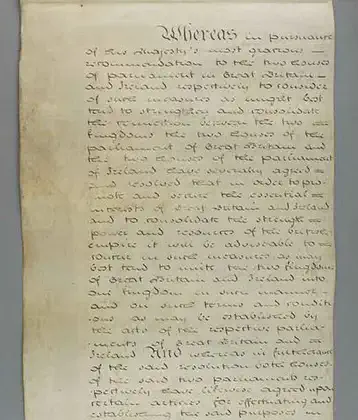 Whereas in pursuance
of his Majesty's most gracious
recommendation to the two houses
of parliament in Great Britain
and Ireland respectively to consider
of such measures as might best
tend to strengthen and consolidate
the connection between the two
kingdoms the two houses of the
parliament of Great Britain and
the two houses of the parliament
of Ireland have severally agreed
and resolved that in order to pro
mote and secure the essential
interests of Great Britain and Ireland
and to consolidate the strength
power and resources of the british
empire it will be adviseable to
concur in such measures as may
best tend to unite the two kingdoms
of Great Britain and Ireland into
one kingdom in such manner
and on such terms and conditi
ons as may be established by
the acts of the respective parlia
ments of Great Britain and
Ireland And whereas in furtherance
of the said resolution both houses
of the said two parliaments res
pectively have likewise agreed upon
certain articles for effectuating and
establishing the said purposes in